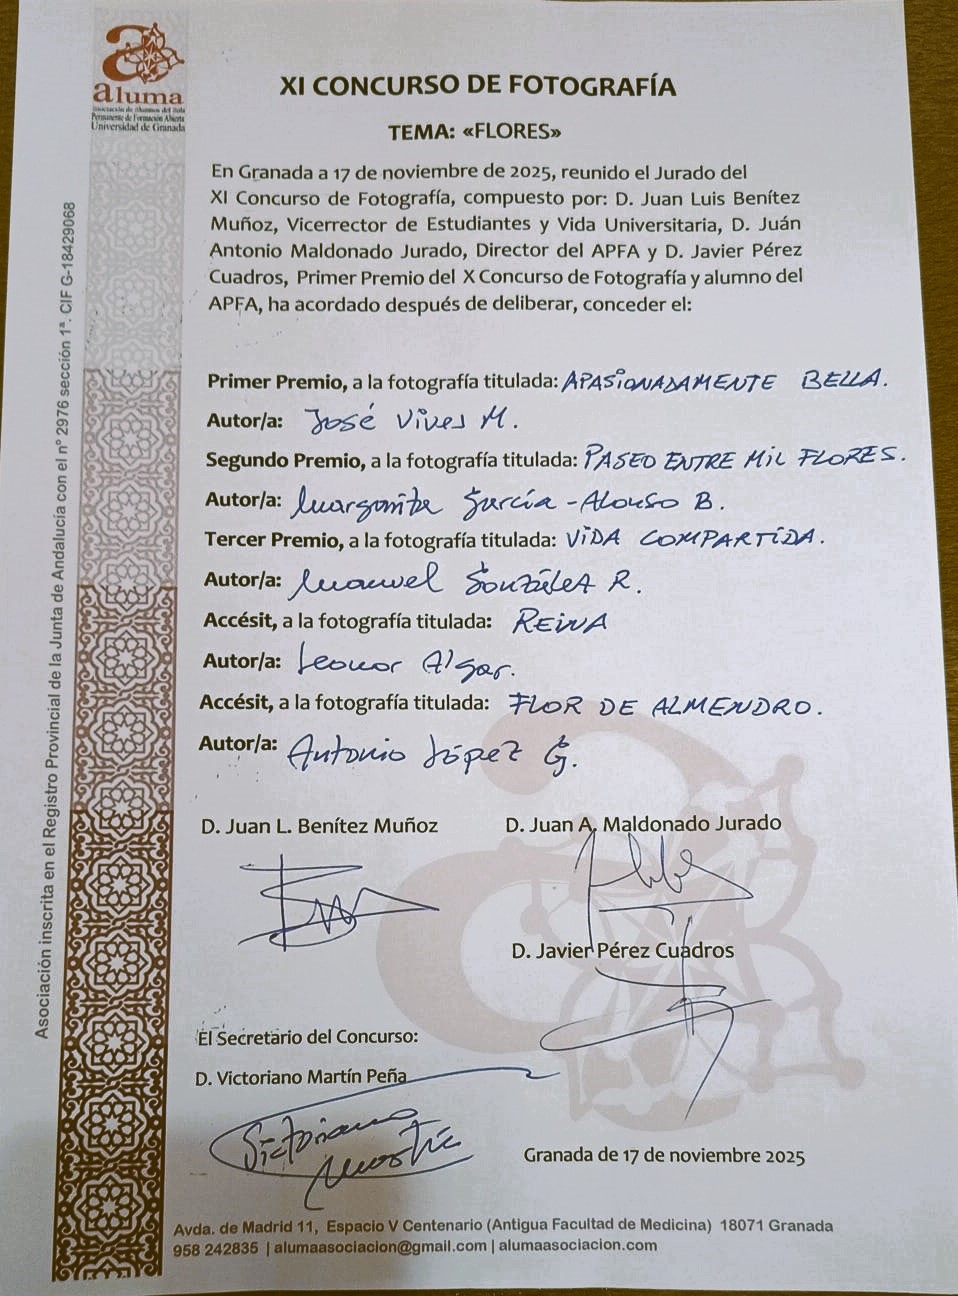 aluma
Asociación de Alumnos del Aula
Permanente de Formación Abierta
Universidad de Granada
XI CONCURSO DE FOTOGRAFÍA
TEMA: «FLORES»
En Granada a 17 de noviembre de 2025, reunido el Jurado del
XI Concurso de Fotografía, compuesto por: D. Juan Luis Benítez
Muñoz, Vicerrector de Estudiantes y Vida Universitaria, D. Juán
Antonio Maldonado Jurado, Director del APFA y D. Javier Pérez
Cuadros, Primer Premio del X Concurso de Fotografía y alumno del
APFA, ha acordado después de deliberar, conceder el:
Primer Premio, a la fotografía titulada: APASIONADAMENTE BELLA.
Autor/a: José Vives M.
Segundo Premio, a la fotografía titulada: PASEO ENTRE MIL FLORES.
Autor/a: Margarita García-Alonso B.
Tercer Premio, a la fotografía titulada: VIDA COMPARTIDA.
Autor/a: Manuel González R.
Accésit, a la fotografía titulada: REINA
Autor/a: Leonor Algar.
Accésit, a la fotografía titulada: FLOR DE ALMENDRO.
Autor/a: Antonio López G.
D. Juan L. Benítez Muñoz
D. Juan A. Maldonado Jurado
D. Javier Pérez Cuadros
El Secretario del Concurso:
D. Victoriano Martín Peña
Victoriano
Martín
Granada de 17 de noviembre 2025
Avda. de Madrid 11, Espacio V Centenario (Antigua Facultad de Medicina) 18071 Granada
958 242835 | alumaasociacion@gmail.com | alumaasociacion.com
Asociación inscrita en el Registro Provincial de la Junta de Andalucía con el nº 2976 sección 1ª. CIF G-18429068